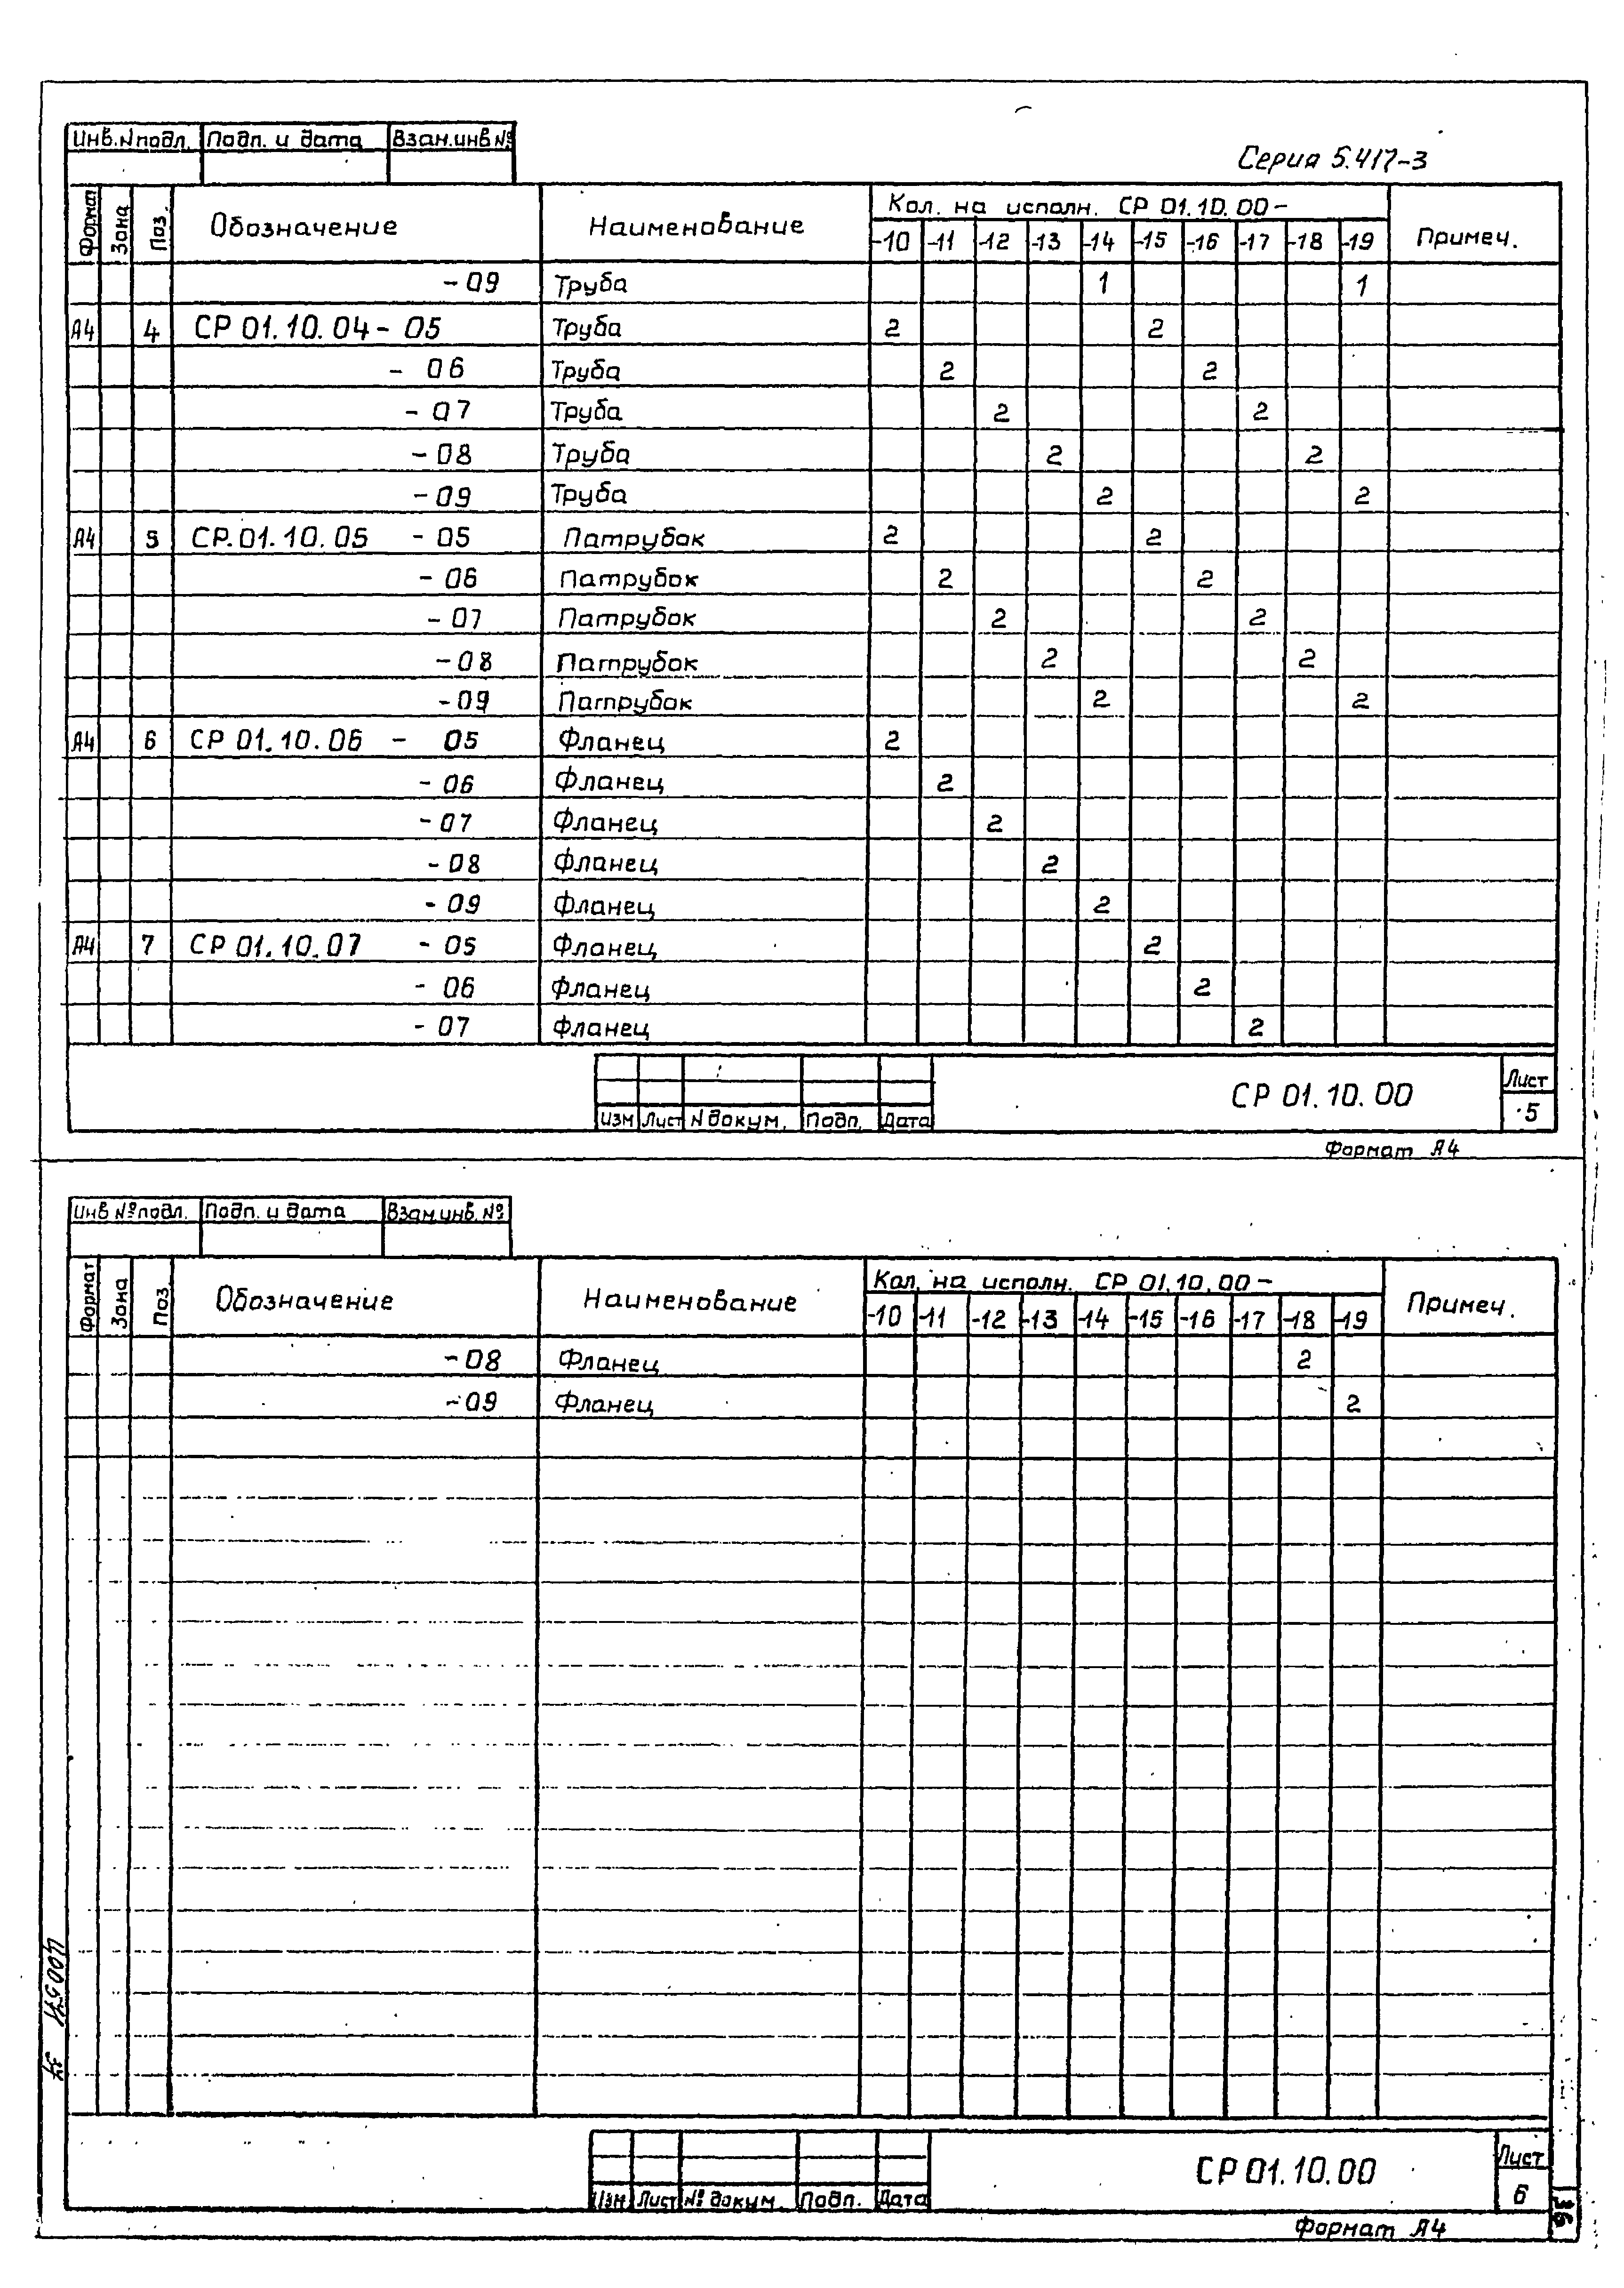 Инв.Nподл. Подп. и дата Взам.инв №
Серия 5.417-3
Формат Зона Поз. Обозначение Наименование Кол. на исполн. СР 01.10.00- Примеч.
-10 -11 -12 -13 -14 -15 -16 -17 -18 -19
-09 Труба 1 1
А4 4 СР 01.10.04 - 05 Труба 2 2
- 06 Труба 2 2
- 07 Труба 2 2
- 08 Труба 2 2
- 09 Труба 2 2
А4 5 СР.01.10.05 - 05 Патрубок 2 2
- 06 Патрубок 2 2
- 07 Патрубок 2 2
- 08 Патрубок 2 2
- 09 Патрубок 2 2
А4 6 СР 01.10.06 - 05 Фланец 2
- 06 Фланец 2
- 07 Фланец 2
- 08 Фланец 2
- 09 Фланец 2
А4 7 СР 01.10.07 - 05 Фланец 2
- 06 Фланец 2
- 07 Фланец 2
СР 01.10.00
Лист
5
Изм Лист N докум. Подп. Дата
Формат А4
Инв №подл. Подп. и дата Взам.инв. №
Формат Зона Поз Обозначение Наименование Кол. на исполн. СР 01.10.00- Примеч.
-10 -11 -12 -13 -14 -15 -16 -17 -18 -19
-08 Фланец 2
-09 Фланец 2
СР 01.10.00
Лист
6
Изм Лист № докум. Подп. Дата
Формат А4
36